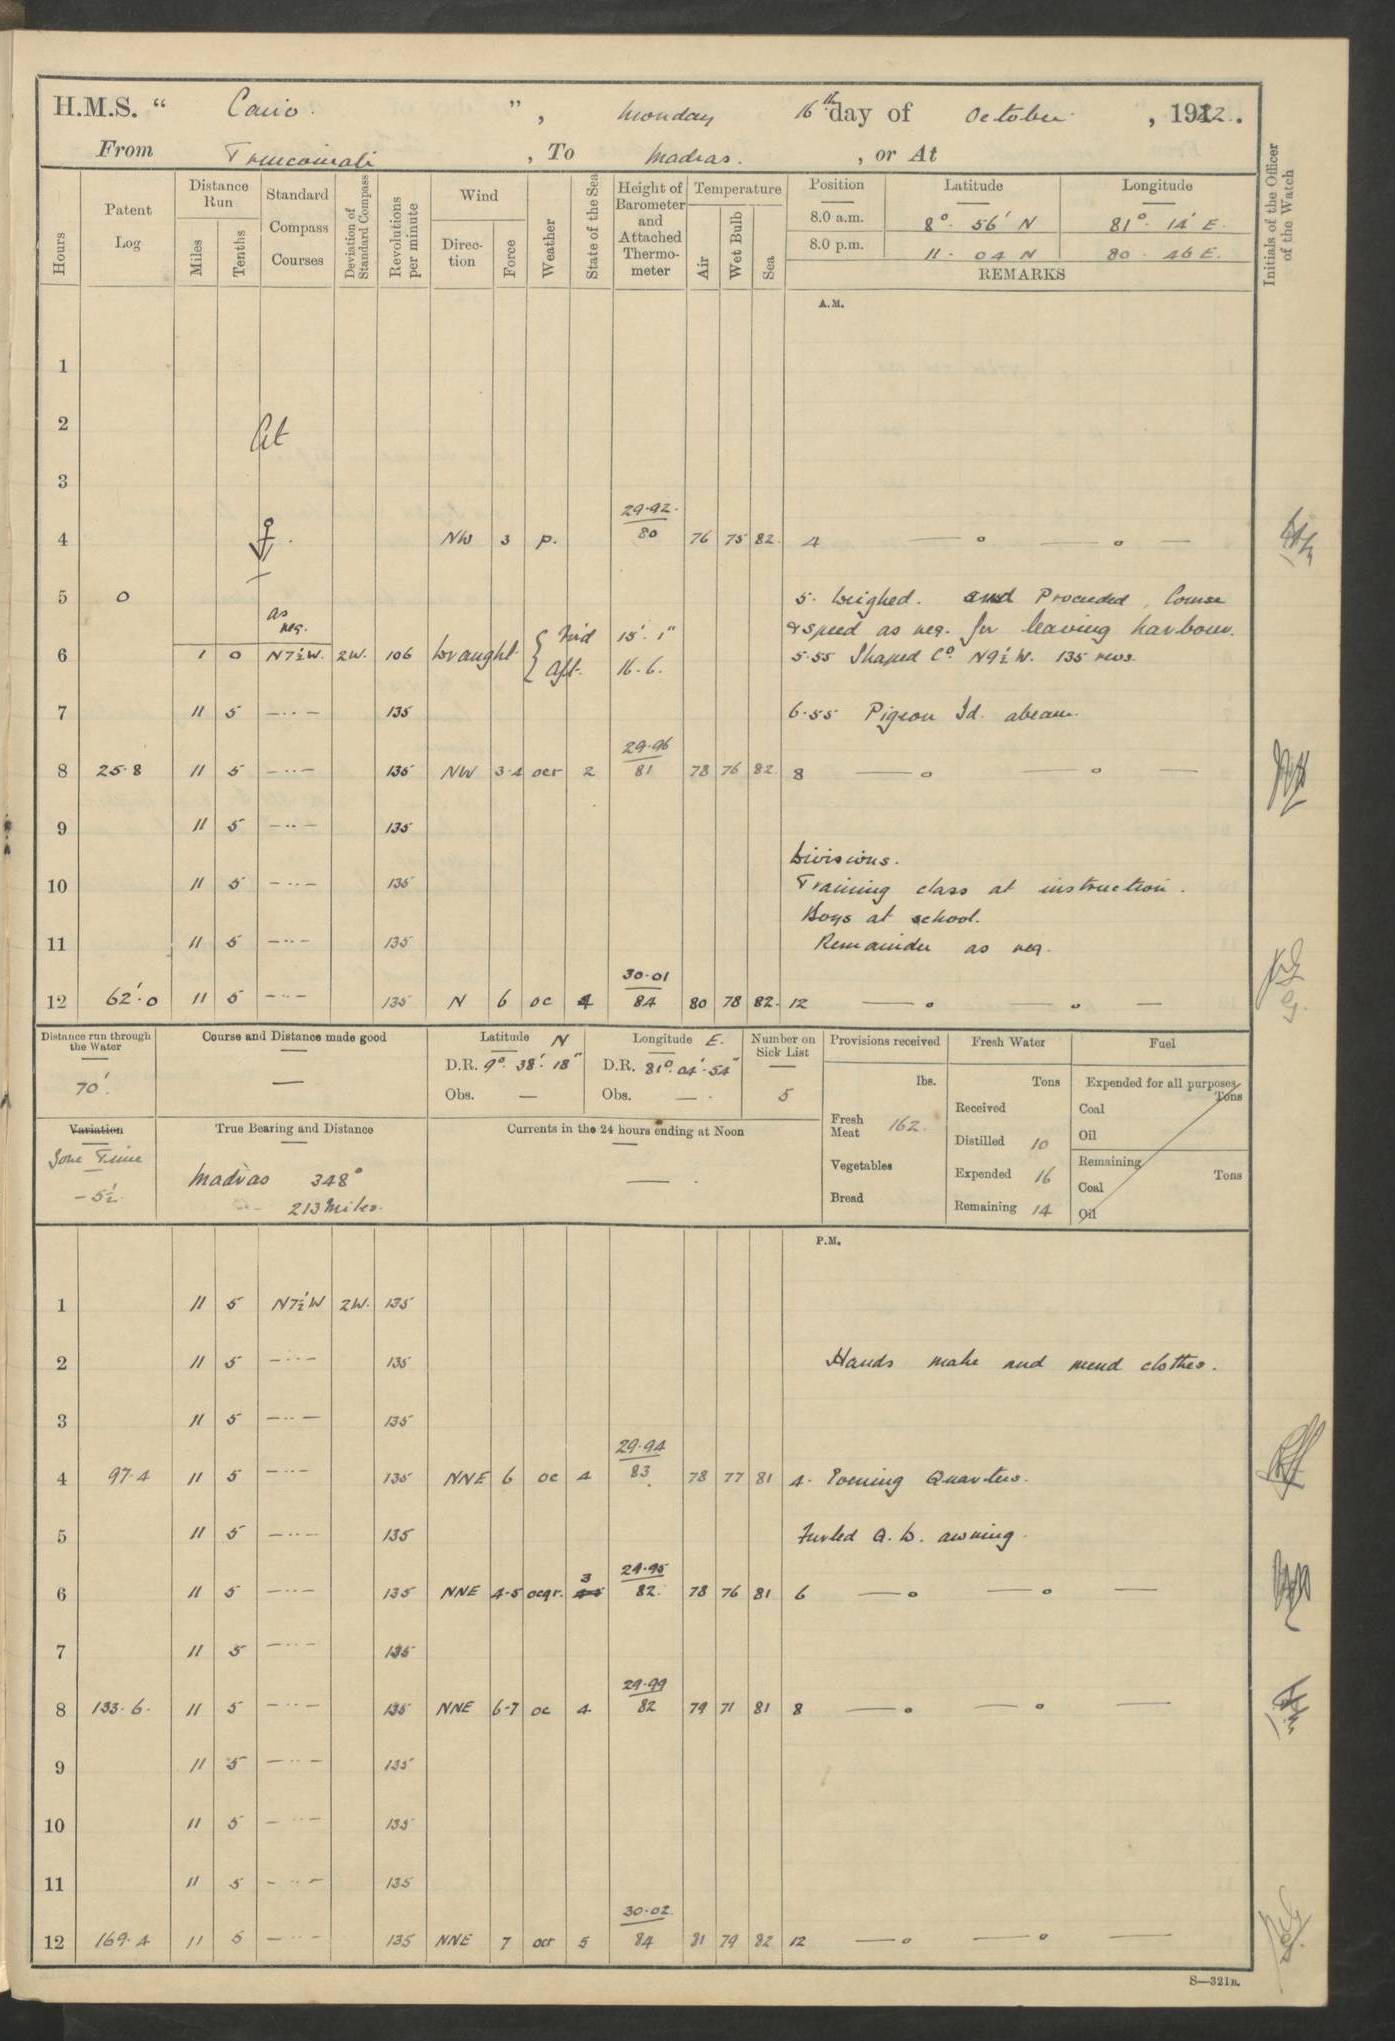 H.M.S. “ Cairo. ”, Monday 16th day of October, 1922.
From Trincomali, To Madras., or At
Hours
Patent Log
Distance Run
Miles
Tenths
Standard Compass Courses
Deviation of Standard Compass
Revolutions per minute
Wind
Direction
Force
Weather
State of the Sea
Height of Barometer and Attached Thermometer
Temperature
Air
Wet Bulb
Sea
Position Latitude Longitude
8.0 a.m. 8° 56' N 81° 14' E.
8.0 p.m. 11 - 04 N 80 - 46 E.
REMARKS
Initials of the Officer of the Watch
A.M.
1
2 At
3
29.92.
4 NW 3 p. 80 76 75 82. 4 — o — o —
5 0 5. Weighed. and Proceeded, Course
as req. Draught { For'd 15'. 1" & speed as req. for leaving harbour.
6 1 0 N7½W. 2W. 106 Aft. 16. 6. 5.55 Shaped Co. N9½W. 135 revs.
7 11 5 — ·· — 135 6.55 Pigeon Id. abeam.
29.96
8 25.8 11 5 — ·· — 135 NW 3-4 ocr 2 81 78 76 82 8 — o — o —
9 11 5 — ·· — 135
Divisions.
10 11 5 — ·· — 135 Training class at instruction.
Boys at school.
11 11 5 — ·· — 135 Remainder as req.
30.01
12 62'.0 11 5 — ·· — 135 N 6 oc 4 84 80 78 82. 12 — o — o —
Distance run through the Water
70'.
Course and Distance made good
—
Latitude N
D.R. 9° 38' 18"
Obs. —
Longitude E.
D.R. 81° 04' 54"
Obs. —
Number on Sick List
5
Provisions received
lbs.
Fresh Meat 162.
Vegetables
Bread
Fresh Water
Tons
Received
Distilled 10
Expended 16
Remaining 14
Fuel
Expended for all purposes
Tons
Coal
Oil
Remaining
Coal Tons
Oil
Variation
Zone Time
- 5½
True Bearing and Distance
Madras 348°
213 Miles.
Currents in the 24 hours ending at Noon
—
P.M.
1 11 5 N7½W 2W. 135
2 11 5 — ·· — 135 Hands make and mend clothes.
3 11 5 — ·· — 135
29.94
4 97.4 11 5 — ·· — 135 NNE 6 oc 4 83 78 77 81 4. Evening Quarters.
5 11 5 — ·· — 135 Furled Q.D. awning.
3 29.95
6 11 5 — ·· — 135 NNE 4-5 ocqr. 4-5 82 78 76 81 6 — o — o —
7 11 5 — ·· — 135
29.99
8 133.6. 11 5 — ·· — 135 NNE 6-7 oc 4 82 79 71 81 8 — o — o —
9 11 5 — ·· — 135
10 11 5 — ·· — 135
11 11 5 — ·· — 135
30.02
12 169.4 11 5 — ·· — 135 NNE 7 ocr 5 84 81 79 82 12 — o — o —
S—321B.